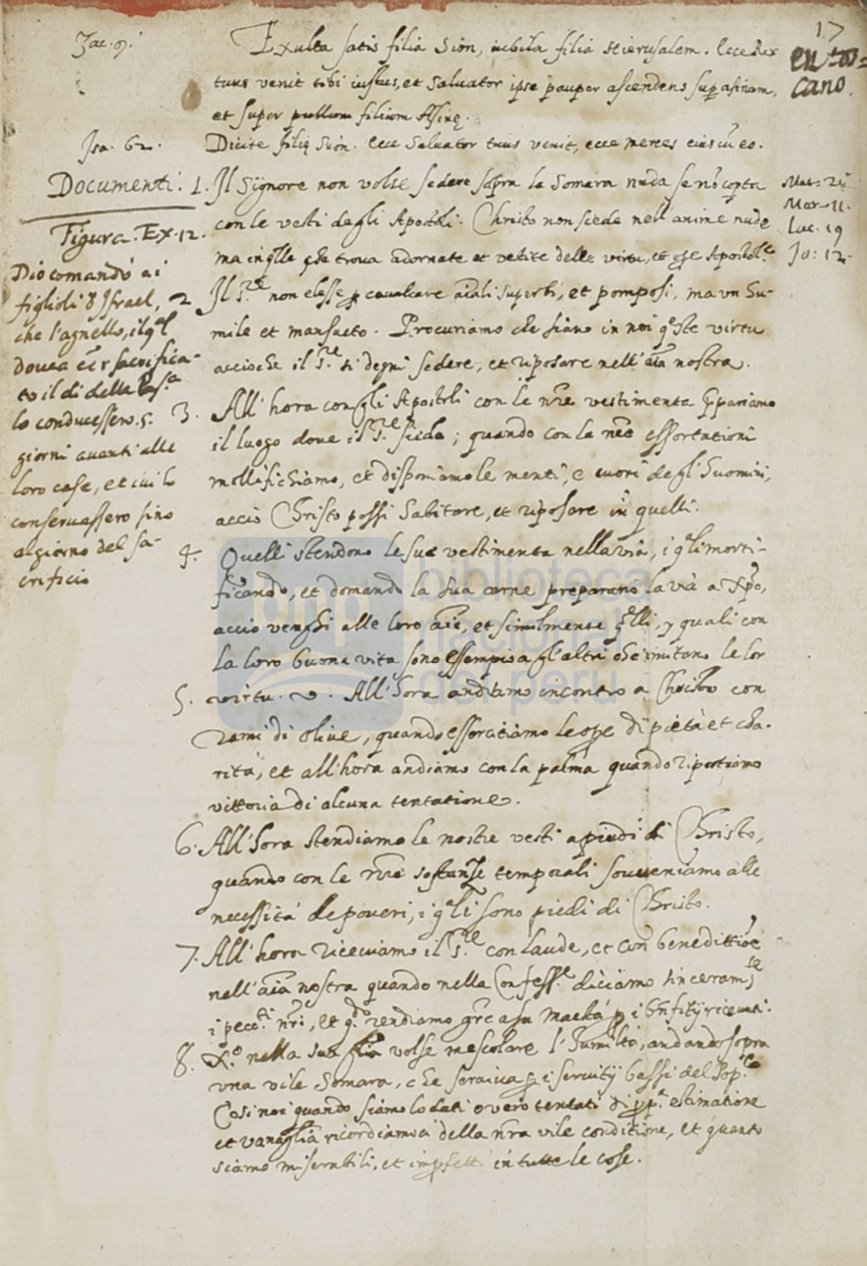 17
en tos=
cano.
Zac. 9.
Exulta satis filia Sion, iubila filia Hierusalem. Ecce Rex
tuus venit tibi iustus, et Salvator ipse pauper ascendens sup asinam,
et super pullum filium Asinę.
Isa. 62.
Dicite filię Sion. Ecce Salvator tuus venit, ecce merces eius cū eo.
Documenti. 1. Il Signore non volse sedere sopra la Somara nuda se nō copta
con le vesti degli Apostoli. Christo non siede nell'anime nude
ma in qlle che trova adornate et vestite delle virtu, et
Mat. 21
Mar. 11.
Luc. 19
Jo: 12.
Figura. Ex. 12.
Dio comandò ai
figlioli d'Israel,
che l'agnello, il ql
doueа eēr sacrifica-
to il di della
lo conducessero. 5.
giorni auanti alle
loro case, et iui lo
conseruassero sino
al giorno del sa-
crificio
2. Il S.re non elesse p caualcare aīali superbi, et pomposi, ma un hu-
mile et mansueto. Procuriamo che siano in noi qste virtu
accioche il S.re si degni sedere, et riposare nell'aīa nostra.
3. All'hora con gli Apostoli con le nr̄e vestimenta ppariamo
il luogo doue il S.re sieda; quando con la essortationi
mollifichiamo, et disponiamo le menti, e cuori degl'huomini,
acciò Christo possi habitare, et riposare in quelli.
4. Quelli stendono le sue vestimenta nella via, i qli morti-
ficando, et domando la sua carne preparano la via a Xpo,
acciò venghi alle loro aīe, et similmente qlli, i quali con
la loro buona vita sono essempio a gl'altri che imitano le lor
virtu.
5. All'hora andiamo incontro a Christo con
rami di oliue, quando essercitiamo le ope di pietà et cha-
rità, et all'hora andiamo con la palma quando riportiamo
vittoria di alcuna tentatione.
6. All'hora stendiamo le nostre vesti a piedi di Christo,
quando con le nr̄e sostanze temporali souueniamo alle
necessità de poueri, i qli sono piedi di Christo.
7. All'hora riceuiamo il S.re con laude, et con benedittiōe
nell'aīa nostra quando nella Confess.e diciamo sinceram.te
i pecc.ti nr̄i, et rendiamo gr̄e a sua Maestà p i bn̄fitij riceuuti.
8. X.o nella sua glīa volse mescolare l'humiltà, andando sopra
una vile Somara, che seruiua p i seruitij bassi del Pop.lo
Cosi noi quando siamo lodati overo tentati di estimatione
et vanaglīa ricordiamoci della nr̄a vile conditione, et quanto
siamo miserabili, et impfetti in tutte le cose.
biblioteca
nacional
del perú